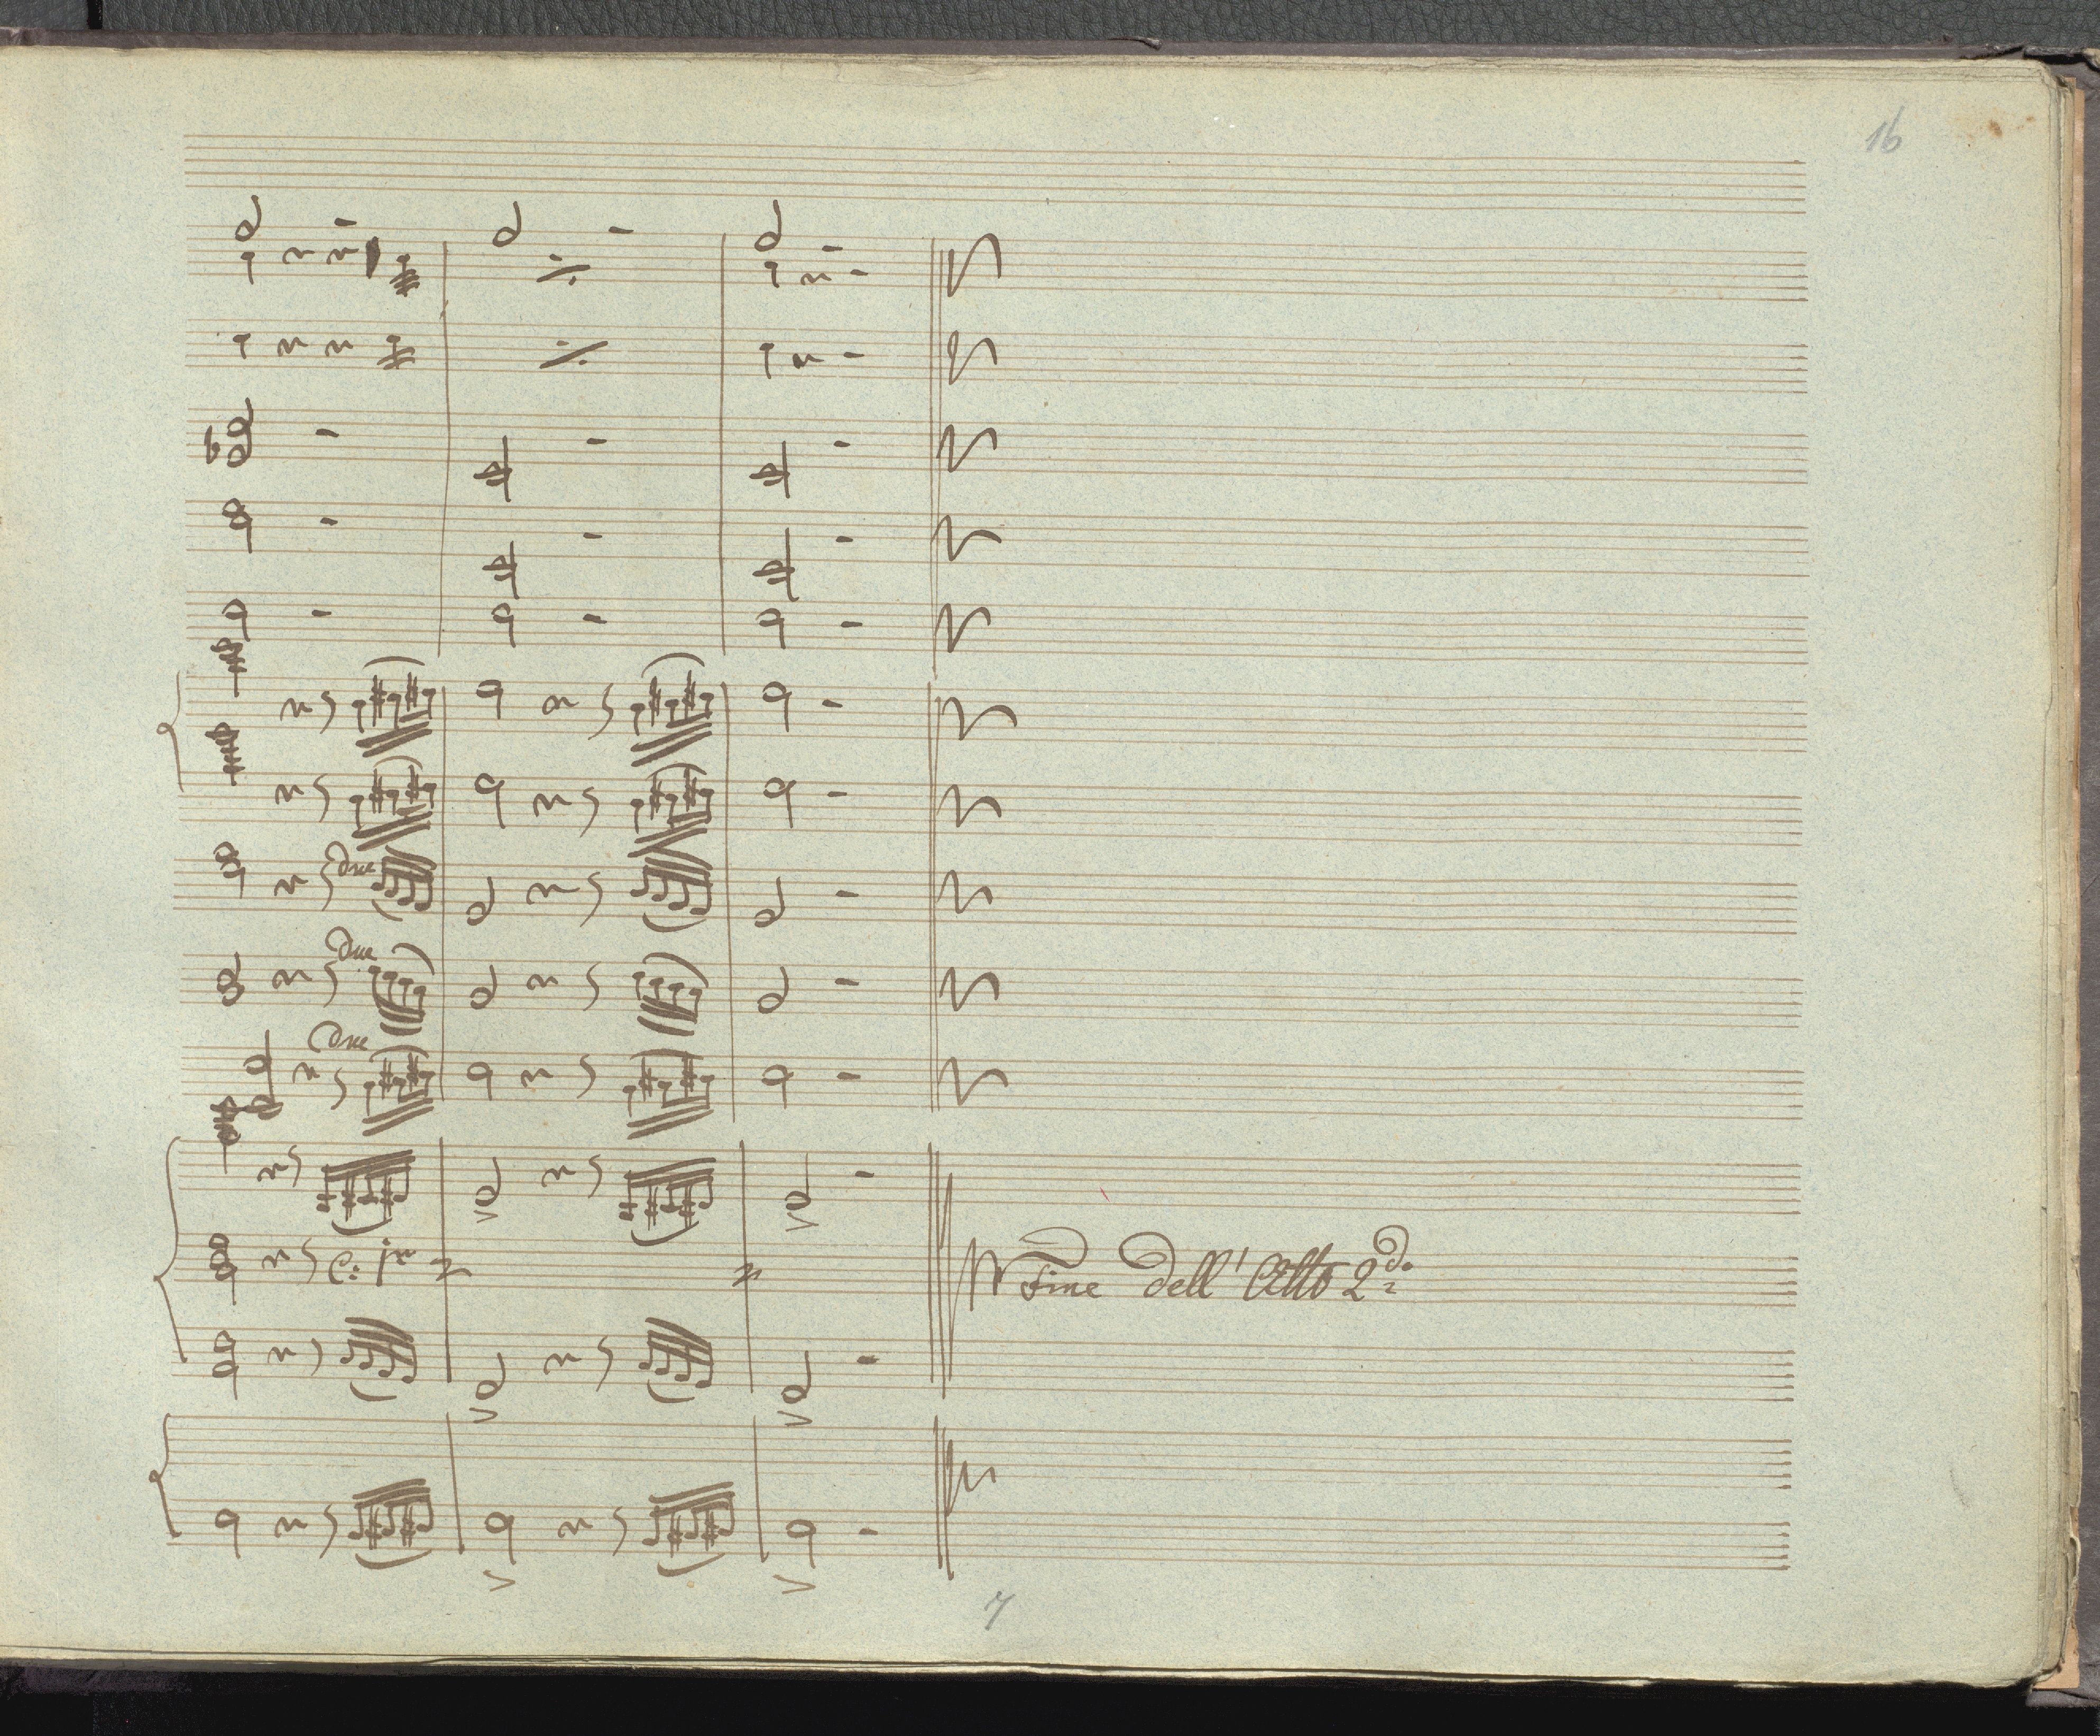 16
due
due
due
C: pmo
Fine dell'Atto 2do.
7